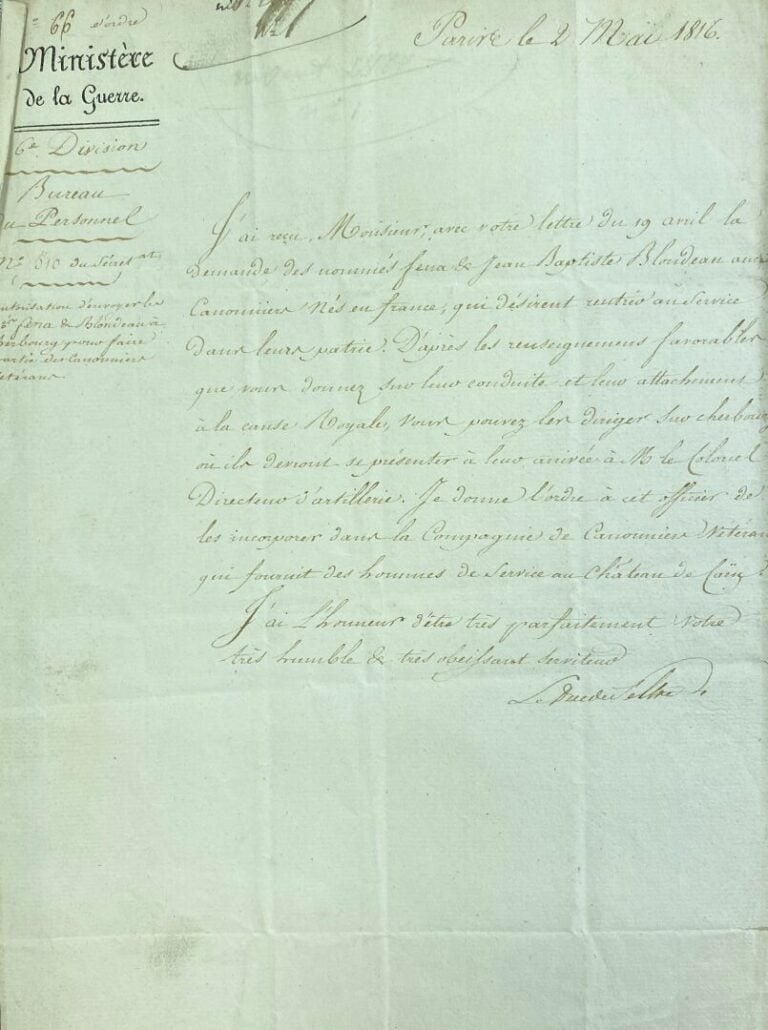 66 d'ordre
Paris le 2 Mai 1816.
Ministère
de la Guerre.
6e. Division
Bureau
du Personnel
N° 810 du Sécret.at
autorisation d'envoyer les
Srs fena & Blondeau à
cherbourg pour faire
partie des Canonniers
vétérans.
J'ai reçu, Monsieur, avec votre lettre du 19 avril la
demande des nommés fena & Jean Baptiste Blondeau anc
Canonniers Nés en france, qui désirent rentrer au Service
dans leur patrie. D'après les renseignemens favorables
que vous donnez sur leur conduite et leur attachement
à la cause Royale, vous pouvez les diriger sur cherbourg
où ils devront se présenter à leur arrivée à M le Colonel
Directeur d'artillerie. Je donne l'ordre à cet officier de
les incorporer dans la Compagnie de Canonniers Vétérans
qui fournit des hommes de Service au Château de
J'ai L'honneur d'être très parfaitement Votre
très humble & très obeissant serviteur
Le Duc de Feltre